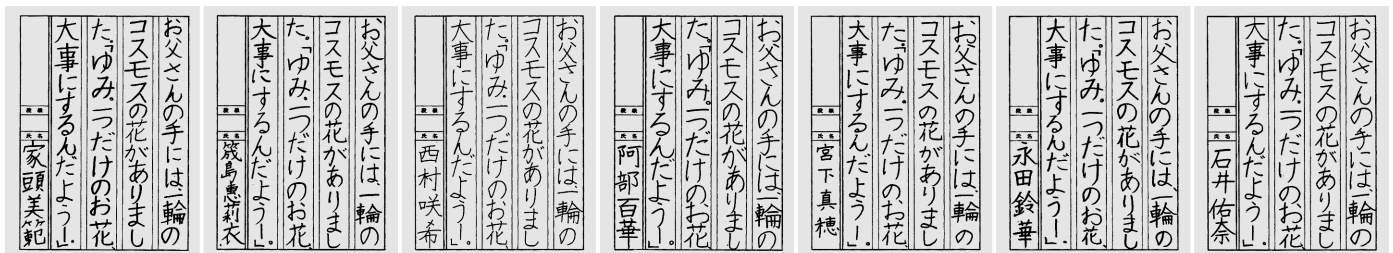 お父さんの手には、一輪の
コスモスの花がありまし
た。「ゆみ。一つだけのお花、
大事にするんだよう―」。
段級
氏名
家頭美範
お父さんの手には、一輪の
コスモスの花がありまし
た。「ゆみ。一つだけのお花、
大事にするんだよう―」。
段級
氏名
筬島惠莉衣
お父さんの手には、一輪の
コスモスの花がありまし
た。「ゆみ。一つだけのお花、
大事にするんだよう―」。
段級
氏名
西村咲希
お父さんの手には、一輪の
コスモスの花がありまし
た。「ゆみ。一つだけのお花、
大事にするんだよう―」。
段級
氏名
阿部百華
お父さんの手には、一輪の
コスモスの花がありまし
た。「ゆみ。一つだけのお花、
大事にするんだよう―」。
段級
氏名
宮下真穂
お父さんの手には、一輪の
コスモスの花がありまし
た。「ゆみ。一つだけのお花、
大事にするんだよう―」。
段級
氏名
永田鈴華
お父さんの手には、一輪の
コスモスの花がありまし
た。「ゆみ。一つだけのお花、
大事にするんだよう―」。
段級
氏名
石井佑奈